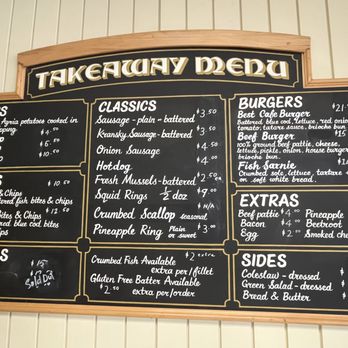 TAKEAWAY MENU
S
Agria potatoes cooked in
$ 4.50
$ 6.50
$ 10.50
& Chips
fish bites & chips
$ 12.50
bites & Chips
blue cod bites
chips
S
$ 15
Sold Out
CLASSICS
Sausage - plain - battered $3.50
Kransky Sausage - battered $5.50
Onion Sausage $4.50
Hotdog $4.00
Fresh Mussels - battered $2.50
Squid Rings 1/2 doz $9.00
Crumbed Scallop seasonal
Pineapple Ring Plain or sweet $3
Crumbed Fish Available $2 extra
extra per/fillet
Gluten Free Batter Available
$2 extra per/order
BURGERS
Best Cafe Burger $21
Battered blue cod, lettuce, red onion
tomato, tatare sauce, brioche bun
Beef Burger
100% ground beef pattie, cheese
lettuce, pickle, onion, house burger
brioche bun.
Fish Sarnie
Crumbed sole, lettuce, tartare
on soft white bread.
EXTRAS
Beef pattie $4.00 Pineapple
Bacon $4.00 Beetroot
Egg $2.00 Smoked che
SIDES
Coleslaw - dressed $
Green Salad - dressed $
Bread & Butter $